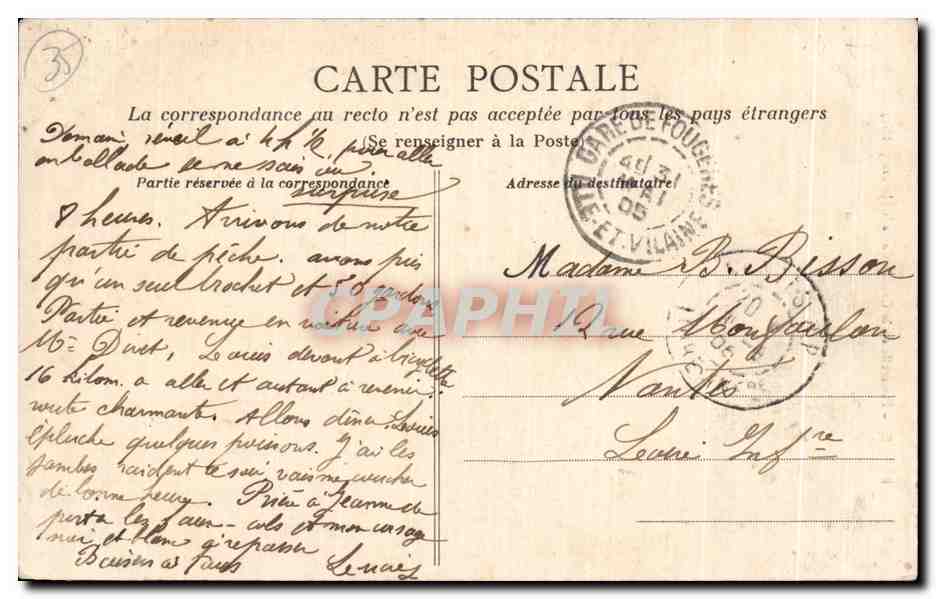 35
CARTE POSTALE
La correspondance au recto n'est pas acceptée par tous les pays étrangers
(Se renseigner à la Poste)
Demain, reveil à 4 h ½ pour aller
en ballade je ne sais où.
surprise
Partie réservée à la correspondance
Adresse du destinataire
GARE DE FOUGERES
ILLE-ET-VILAINE
8 heures. Arrivons de notre
partie de pêche. avons pris
qu'un seul brochet et 50 gardons
Partie et revenue en voiture avec
Me Louis devant à bicyclette
16 kilom. a aller et autant à revenir.
route charmante. Allons dîner. Louis
épluche quelques poissons. J'ai les
jambes raident ce soir vais me coucher
de bonne heure. Prière à Jeanne de
porter les faux-cols et mon corsage
noir et blanc à repasser
Baisers à tous
Madame B. Bisson
12 rue
Nantes
Loire Infre
CPAPHIL